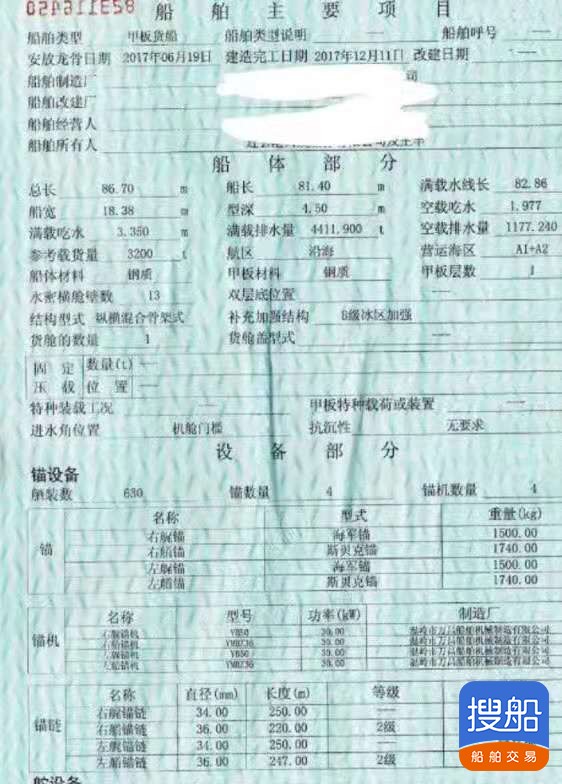 船舶主要项目
船舶类型 甲板货船 船舶类型说明 — 船舶呼号 —
安放龙骨日期 2017年06月19日 建造完工日期 2017年12月11日 改建日期 —
船舶制造厂 司
船舶改建厂
船舶经营人
船舶所有人
船体部分
总长 86.70 m 船长 81.40 m 满载水线长 82.86
船宽 18.38 m 型深 4.50 m 空载吃水 1.977
满载吃水 3.350 m 满载排水量 4411.900 t 空载排水量 1177.240
参考载货量 3200 t 航区 沿海 营运海区 A1+A2
船体材料 钢质 甲板材料 钢质 甲板层数 1
水密横舱壁数 13 双层底位置 —
结构型式 纵横混合骨架式 补充加强结构 B级冰区加强
货舱的数量 1 货舱盖型式 —
固定 数量(t) —
压载 位置 —
特种装载工况 — 甲板特种载荷或装置 —
进水角位置 机舱门槛 抗沉性 无要求
设备部分
锚设备
舾装数 630 锚数量 4 锚机数量 4
名称 型式 重量(kg)
锚
右艉锚 海军锚 1500.00
右艏锚 斯贝克锚 1740.00
左艉锚 海军锚 1500.00
左艏锚 斯贝克锚 1740.00
名称 型号 功率(kW) 制造厂
锚机
右艉锚机 30.00 温岭市万昌船舶机械制造有限公司
右艏锚机 30.00 温岭市万昌船舶机械制造有限公司
左艉锚机 30.00 温岭市万昌船舶机械制造有限公司
左艏锚机 30.00 温岭市万昌船舶机械制造有限公司
名称 直径(mm) 长度(m) 等级
锚链
右艉锚链 34.00 250.00 —
右艏锚链 36.00 220.00 2级
左艉锚链 34.00 250.00 —
左艏锚链 36.00 247.00 2级
搜船
船舶交易